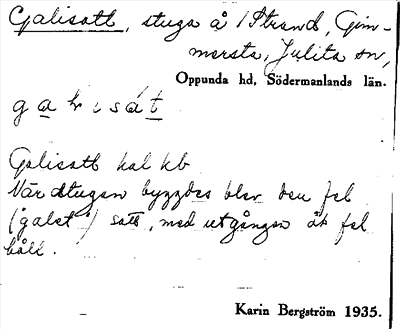 Galisatt, stuga å /Strand, Gim-
mersta, Julita sn,
Oppunda hd, Södermanlands län.
Galisatt kal kb
När stugan byggdes blev den fel
(galet) satt, med utgången åt fel
håll.
Karin Bergström 1935.